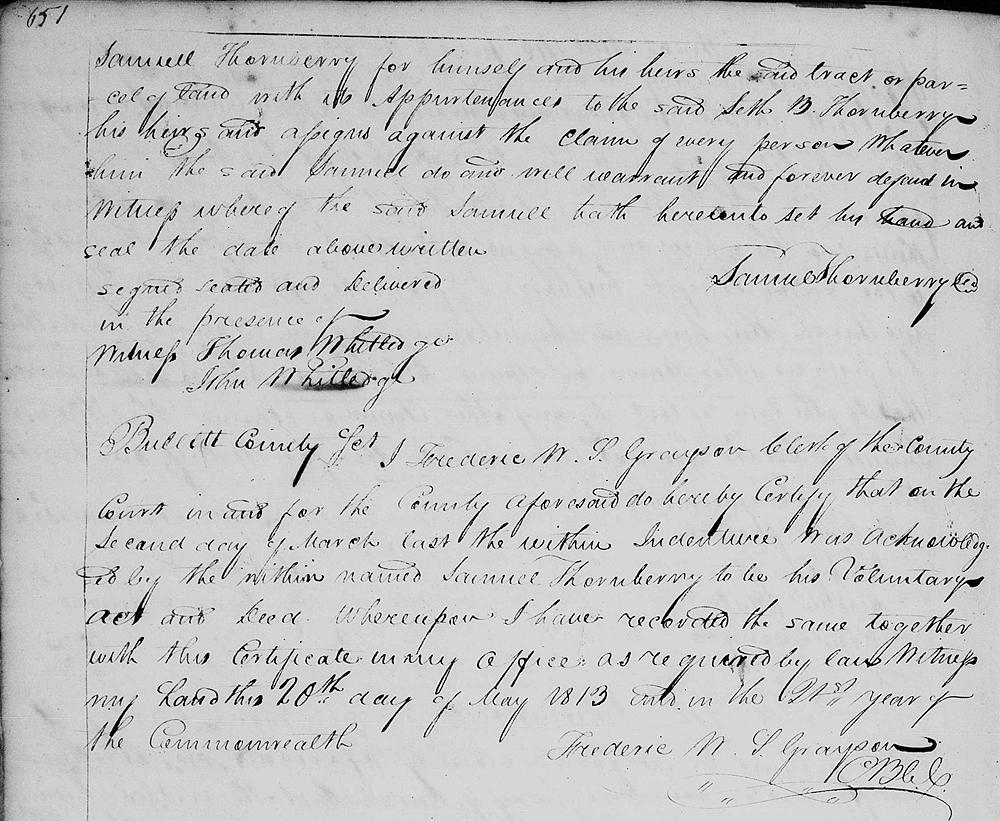 651
Samuell Thornberry for himself and his heirs the said tract or par=
-cel of Land with its Appurtenances to the said Seth B. Thornberry
his heirs and assigns against the claim of every person Whatever
him the said Samuell do and will warrant and forever defend in
Witness whereof the said Samuell hath hereunto set his hand and
seal the date above written
Samuel Thornberry
signed sealed and Delivered
in the presence of
Witness Thomas Whitledge
John Whitledge
Bullitt County Sct I Frederic W. S. Grayson Clerk of the County
Court in and for the County aforesaid do hereby Certify that on the
Second day of March last the within Indenture was acknowledg-
ed by the within named Samuel Thornberry to be his Voluntary
act and deed. Whereupon I have recorded the same together
with this Certificate in my office as required by law Witness
my hand this 20th day of May 1813 and in the 21st year of
the Commonwealth
Frederic W. S Grayson
CBCC